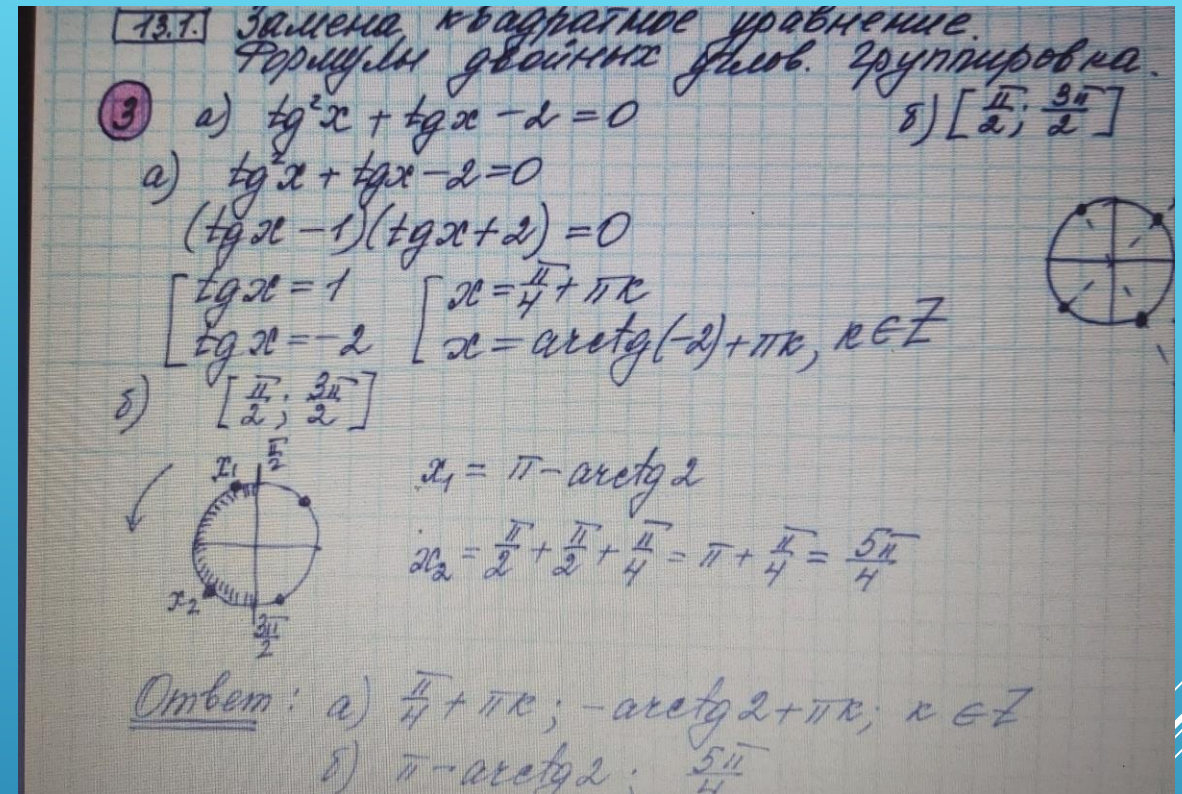 13.1. Замена, квадратное уравнение.
Формулы двойных углов. Группировка.
3 а) tg²x + tgx − 2 = 0 б) [π/2; 3π/2]
а) tg²x + tgx − 2 = 0
(tgx − 1)(tgx + 2) = 0
[tgx = 1 [x = π/4 + πк
[tgx = −2 [x = arctg(−2) + πк, к ∈ Z
б) [π/2; 3π/2]
x₁ π/2 x₁ = π − arctg2
x₂ = π/2 + π/2 + π/4 = π + π/4 = 5π/4
x₂ 3π/2
Ответ: а) π/4 + πк; −arctg2 + πк; к ∈ Z
б) π − arctg2; 5π/4